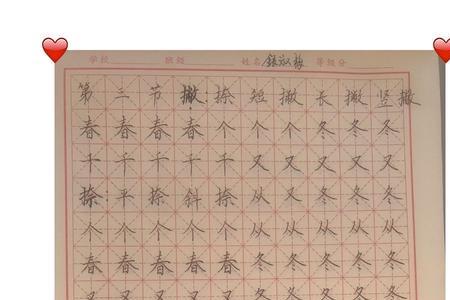 学校 班级 姓名 等级分
第三节撇:捺短撇长撇竖撇
春春春春个个个冬冬冬
千千千千千又又又又又
捺:平捺斜捺从又冬冬冬
个个个个个从从从从从
春春春春春冬冬冬冬冬